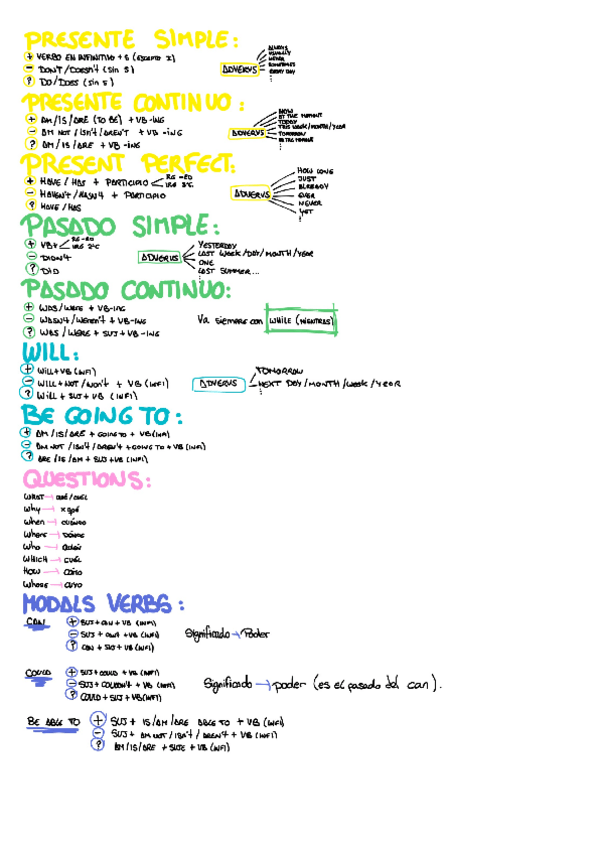 PRESENTE SIMPLE:
+ VERBO EN INFINITIVO + S (EXCEPTO I)
- DON'T / DOESN'T (sin S)
? DO / DOES (sin S)
ADVERVS
ALWAYS
USUALLY
NEVER
SOMETIMES
EVERY DAY
PRESENTE CONTINUO:
+ AM / IS / ARE (TO BE) + VB-ING
- AM NOT / ISN'T / AREN'T + VB -ING
? AM / IS / ARE + VB -ING
ADVERVS
NOW
AT THE MOMENT
TODAY
THIS WEEK / MONTH / YEAR
TOMORROW
PRESENT PERFECT:
+ HAVE / HAS + PARTICIPIO RG -ED IRG 3ºC
- HAVEN'T / HASN'T + PARTICIPIO
? HAVE / HAS
ADVERVS
HOW LONG
JUST
ALREADY
EVER
NEVER
YET
PASADO SIMPLE:
+ VB+ RG -ED IRG 2ºC
- DIDN'T
? DID
ADVERVS
YESTERDAY
LAST WEEK / DAY / MONTH / YEAR
ONE
LAST SUMMER...
PASADO CONTINUO:
+ WAS / WERE + VB-ING
- WASN'T / WEREN'T + VB-ING
? WAS / WERE + SUJ + VB -ING
Va siempre con WHILE (MIENTRAS)
WILL:
+ WILL + VB (INFI)
- WILL + NOT / WON'T + VB (INFI)
? WILL + SUJ + VB (INFI)
ADVERVS
TOMORROW
NEXT DAY / MONTH / WEEK / YEAR
BE GOING TO:
+ AM / IS / ARE + GOING TO + VB (INFI)
- AM NOT / ISN'T / AREN'T + GOING TO + VB (INFI)
? ARE / IS / AM + SUJ + VB (INFI)
QUESTIONS:
WHAT → QUÉ / CUÁL
WHY → X QUÉ
WHEN → CUÁNDO
WHERE → DÓNDE
WHO → QUIÉN
WHICH → CUÁL
HOW → CÓMO
WHOSE → CUYO
MODALS VERBS:
CAN
+ SUJ + CAN + VB (INFI)
- SUJ + CAN'T + VB (INFI)
? CAN + SUJ + VB (INFI)
Significado → Poder
COULD
+ SUJ + COULD + VB (INFI)
- SUJ + COULDN'T + VB (INFI)
? COULD + SUJ + VB (INFI)
Significado → poder (es el pasado del can).
BE ABLE TO
+ SUJ + IS / AM / ARE ABLE TO + VB (INFI)
- SUJ + AM NOT / ISN'T / AREN'T + VB (INFI)
? AM / IS / ARE + SUJ + VB (INFI)